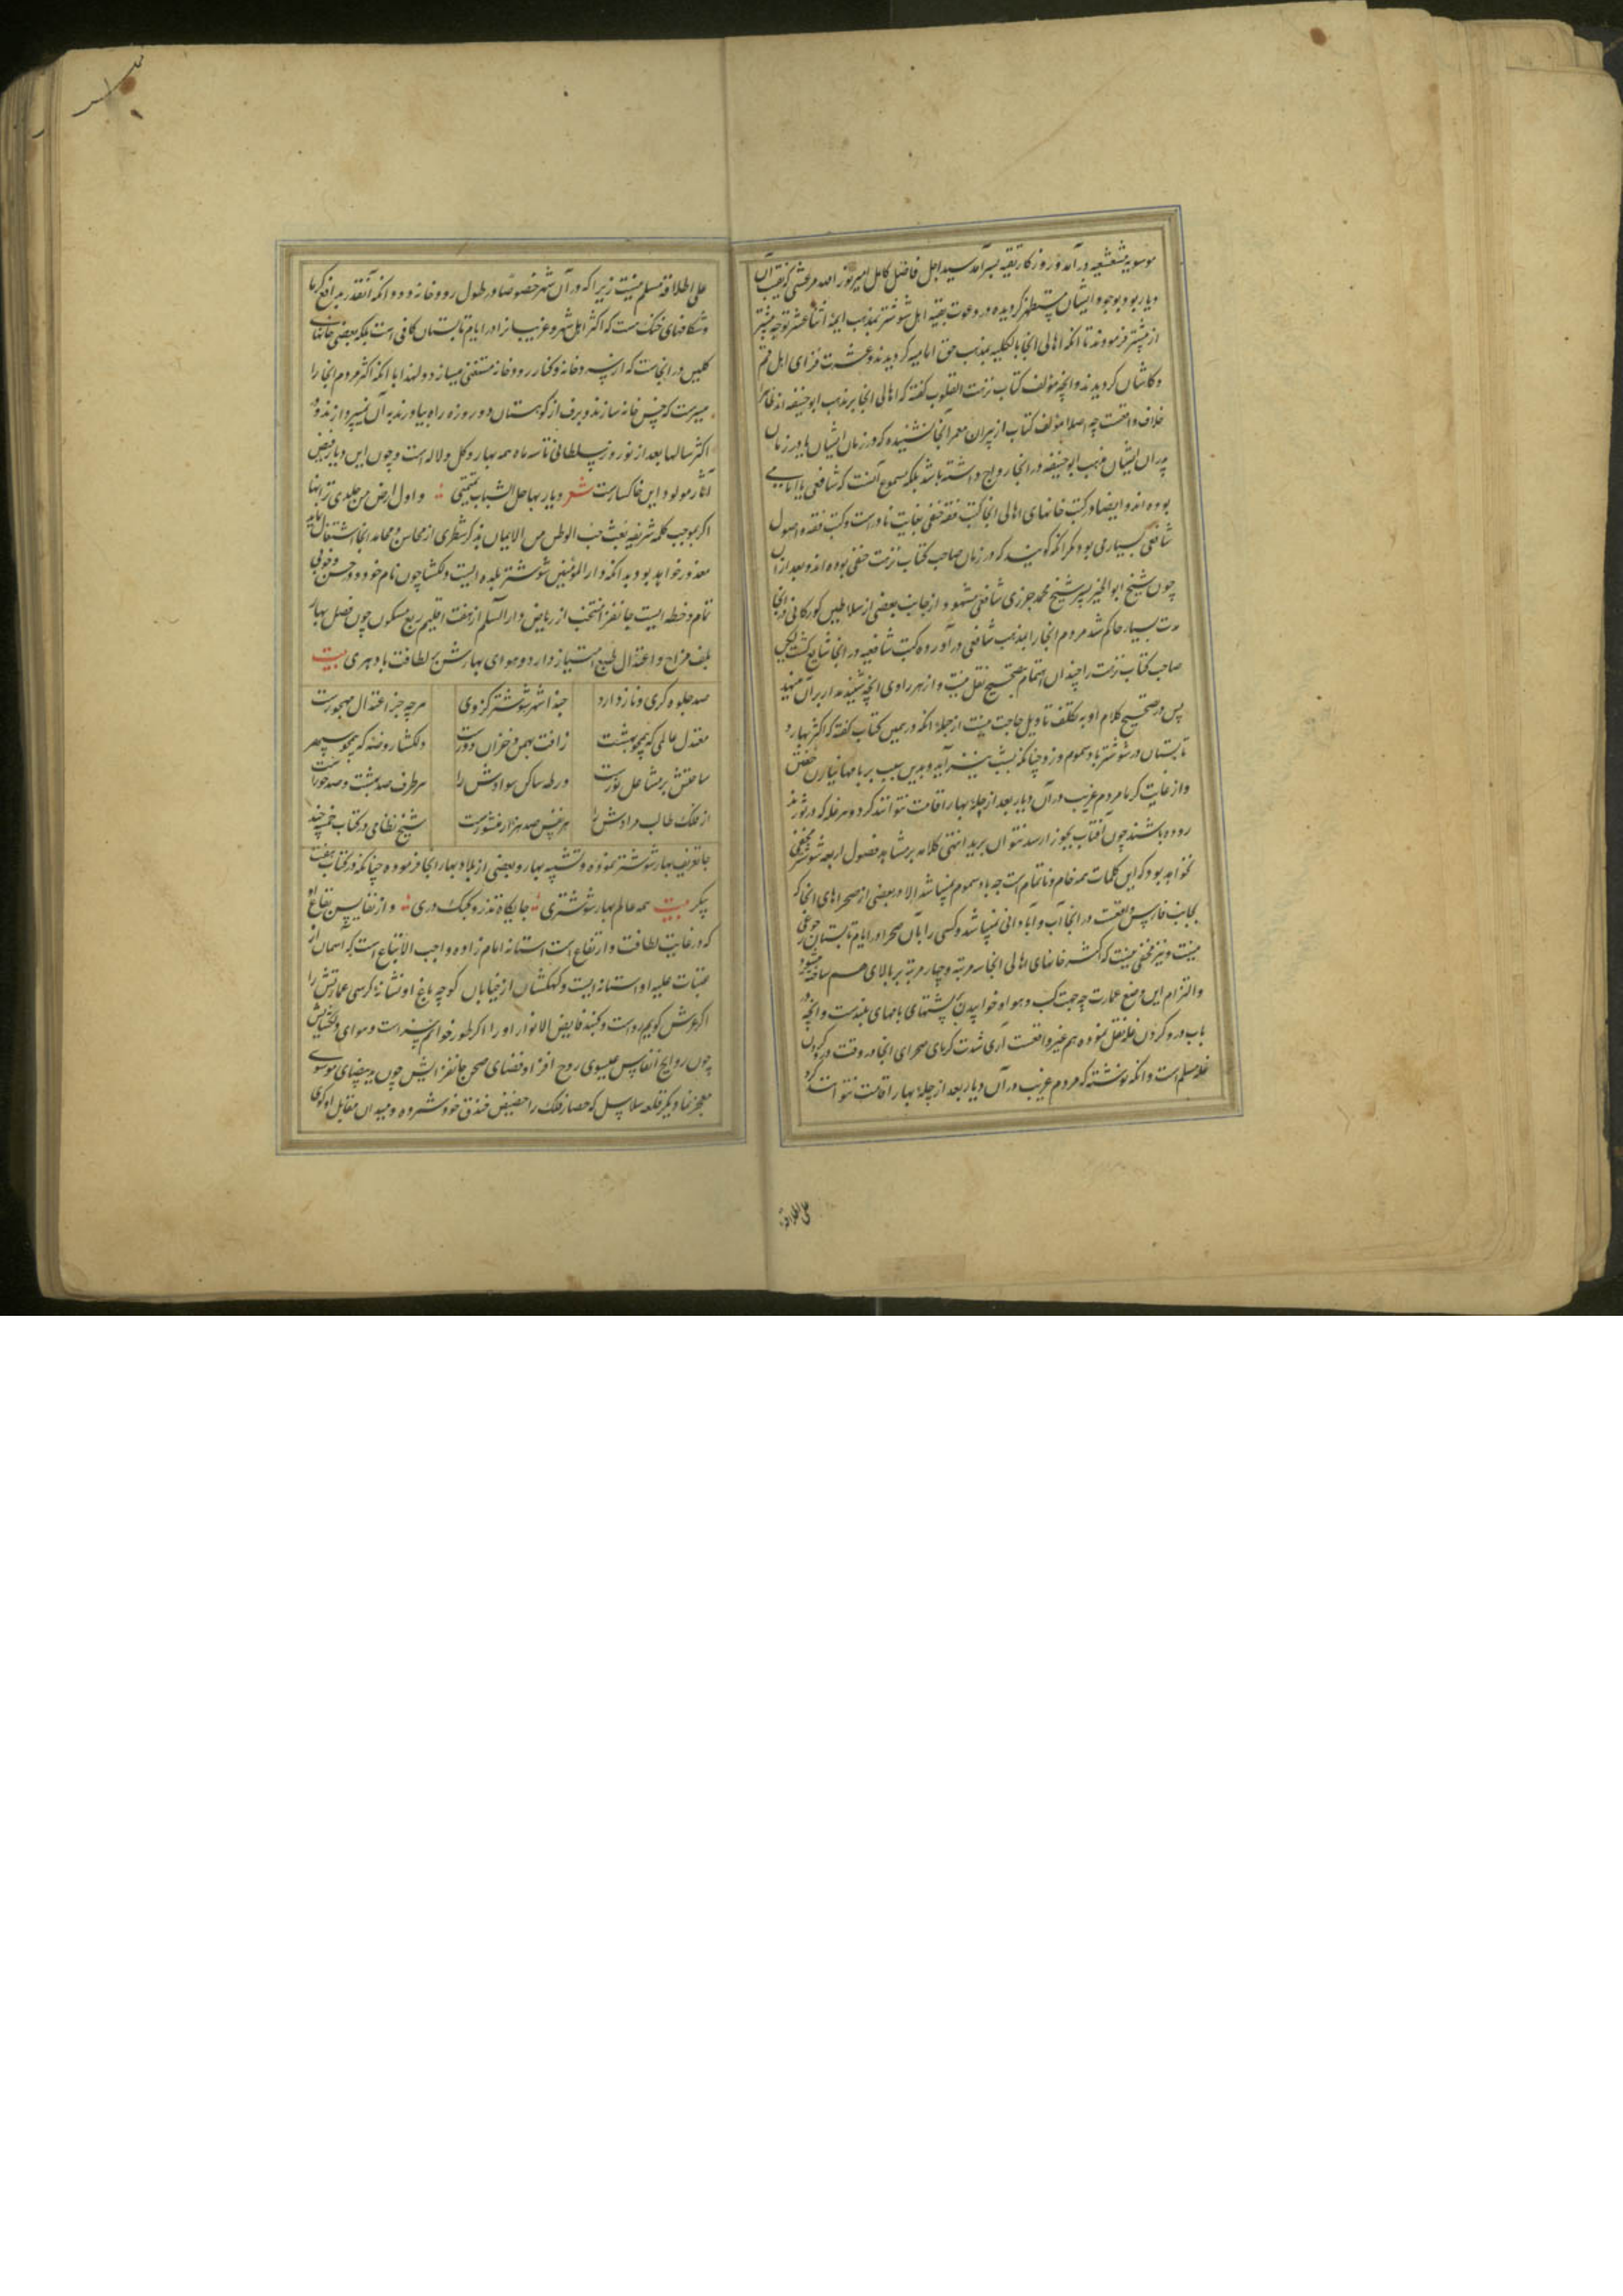 موسویه مشعشعیه درآمد و روزکار تقیه بسرآمد سید اجل فاضل کامل امیر نورالله مرعشی که نقیب آن
دیار بود بوجود ایشان مستظهر کردیده در دعوت بقیه اهل شوشتر بمذهب ایمه اثنا عشر توجه بیشتر
از پیشتر فرمودند تا انکه اهالی انجا بالکلیه بمذهب حق امامیه کردیدند و عشرت فزای اهل قم
و کاشان کردیدند و انچه مؤلف کتاب نزهت القلوب کفته که اهالی انجا بر مذهب ابو حنیفه اند ظاهرا
خلاف واقعست چه اصلا مؤلف کتاب از پیران معمر آنجا نشنیده که در زمان ایشان یا در زمان
پدران ایشان مذهب ابو حنیفه در انجا رواج داشته باشد بلکه مسموع آنست که شافعی یا امامی
بوده اند و ایضا در کتب خانهای اهالی انجا کتب فقه حنفی بغایت نادر است و کتب فقه و اصول
شافعی بسیار می بود مکر انکه کویند که در زمان صاحب کتاب نزهت حنفی بوده اند و بعد ازان
چون شیخ ابو الخیر پسر شیخ محمد جزری شافعی مشهور از جانب بعضی از سلاطین کورکانی در انجا
مدت بسیار حاکم شد مردم انجا را بمذهب شافعی در آورده کتب شافعیه در انجا شایع کشت لیکن
صاحب کتاب نزهت را چندان اهتمام بتصحیح نقل نیست و از هر راوی انچه شنیده مدار بر آن مینهد
پس در تصحیح کلام او به تکلف تاویل حاجت نیست از جمله انکه در همین کتاب کفته که اکثر بهار و
تابستان در شوشتر باد سموم وزد چنانکه بشب نیز آید و بدین سبب بر بامها نیارند خفتن
و از غایت کرما مردم غریب در آن دیار بعد از چله بهار اقامت نتوانند کرد و هر غله که در ثور ند
روده باشند چون آفتاب بجوزا رسد نتوان برید انتهی کلامه بر مشاهد فصول اربعه شوشتر مخفی
نخواهد بود که این کلمات همه خام و ناتمام است چه باد سموم نمیباشد الا در بعضی از صحراهای انجا که
بجانب فارس واقعست در انجا آب و آبادانی نمیباشد و کسی را بآن صحرا در ایام تابستان رجوعی
نیست و نیز مخفی نیست که اکثر خانهای اهالی انجا سه مرتبه و چهار مرتبه بر بالای هم ساخته میشود
و التزام این وضع عمارت چه جهت کسب و هوا و خوابیدن پشتهای بامهای بلندست و انچه در
باب درو کردن غله نقل نموده هم غیر واقعست آری شدت کرمای صحرای انجا در وقت درو کردن
غله مسلم است و انکه نوشته که مردم غریب در آن دیار بعد از چله بهار اقامت نتوانند کرد
علی اطلاقه
علی اطلاقه مسلم نیست زیرا که در آن شهر خصوصا در طول رودخانه دو دانکه آنقدر مدافع کرما
و شکافهای خنک هست که اکثر اهل شهر و غریبانرا در ایام تابستان کافی است بلکه بعضی خانهای
کلین در انجاست که از سردخانه و کنار رودخانه مستغنی میسازد و لهذا با انکه اکثر مردم انجا را
میسرست که خس خانه سازند و برف از کوهستان دو روزه راه بیاورند به آن نمیپردازند و در
اکثر سالها بعد از نوروز سلطانی تا سه ماه همه بهار و کل و لاله است و چون این دیار فیض
آثار مولود این خاکسارست شعر دیار بها حل الشباب تمیمتی و اول ارض مس جلدی ترابها
اکر بموجب کلمه شریفه حب الوطن من الایمان بذکر شطری از محاسن و محامد انجا اشتغال نماید
معذور خواهد بود بدانکه دار المؤمنین شوشتر بلده ایست دلکشا چون نام خود در حسن و خوبی
تمام و خطه ایست جانفزا منتخب از ریاض دار السلم از هفت اقلیم ربع مسکون چون فصل بهار
بلطف مزاج و اعتدال طبع امتیاز دارد و هوای بهارش بر لطافت باد هری بیت
صد جلوه کری و ناز دارد حبذا شهر شوشتر کز وی هرچه جز اعتدال مهجورست
معتدل عالمی که همچو بهشت ز آفت بهمن و خزان دورست دلکشا روضه که همچو سپهر
ساحتش بر مشاعل نورست در طه ساکن سوادش را هر طرف صد بهشت و صد حوراست
از فلک طالب مرادش را هر نفس صد هزار منشورست شیخ نظامی در کتاب خمسه چند
جا تعریف بهار شوشتر نموده و تشبیه بهار و بعضی از بلاد بهار انجا فرموده چنانکه در کتاب هفت
پیکر بیت همه عالم بهار شوشتری جایکاه تذرو و کبک دری و از نفایس بقاع او
که در غایت لطافت و ارتفاع است استانه امام زاده واجب الاتباع است که آسمان از
عتبات علیه او استانه ایست و کهکشان از خیابان کوچه باغ او نشانه کرسی عمارتش را
اکر عرش کویم رواست و کنبد فایض الانوار او را اکر طور خوانم سزاست و هوای دلکشایش
چون روایح انفاس عیسوی روح افزا و فضای صحن جانفزایش چون ید بیضای موسوی
معجز نما و یکر قلعه سلاسل که حصار فلک را حضیض خندق خود شمرده و میدان مقابل او کوی